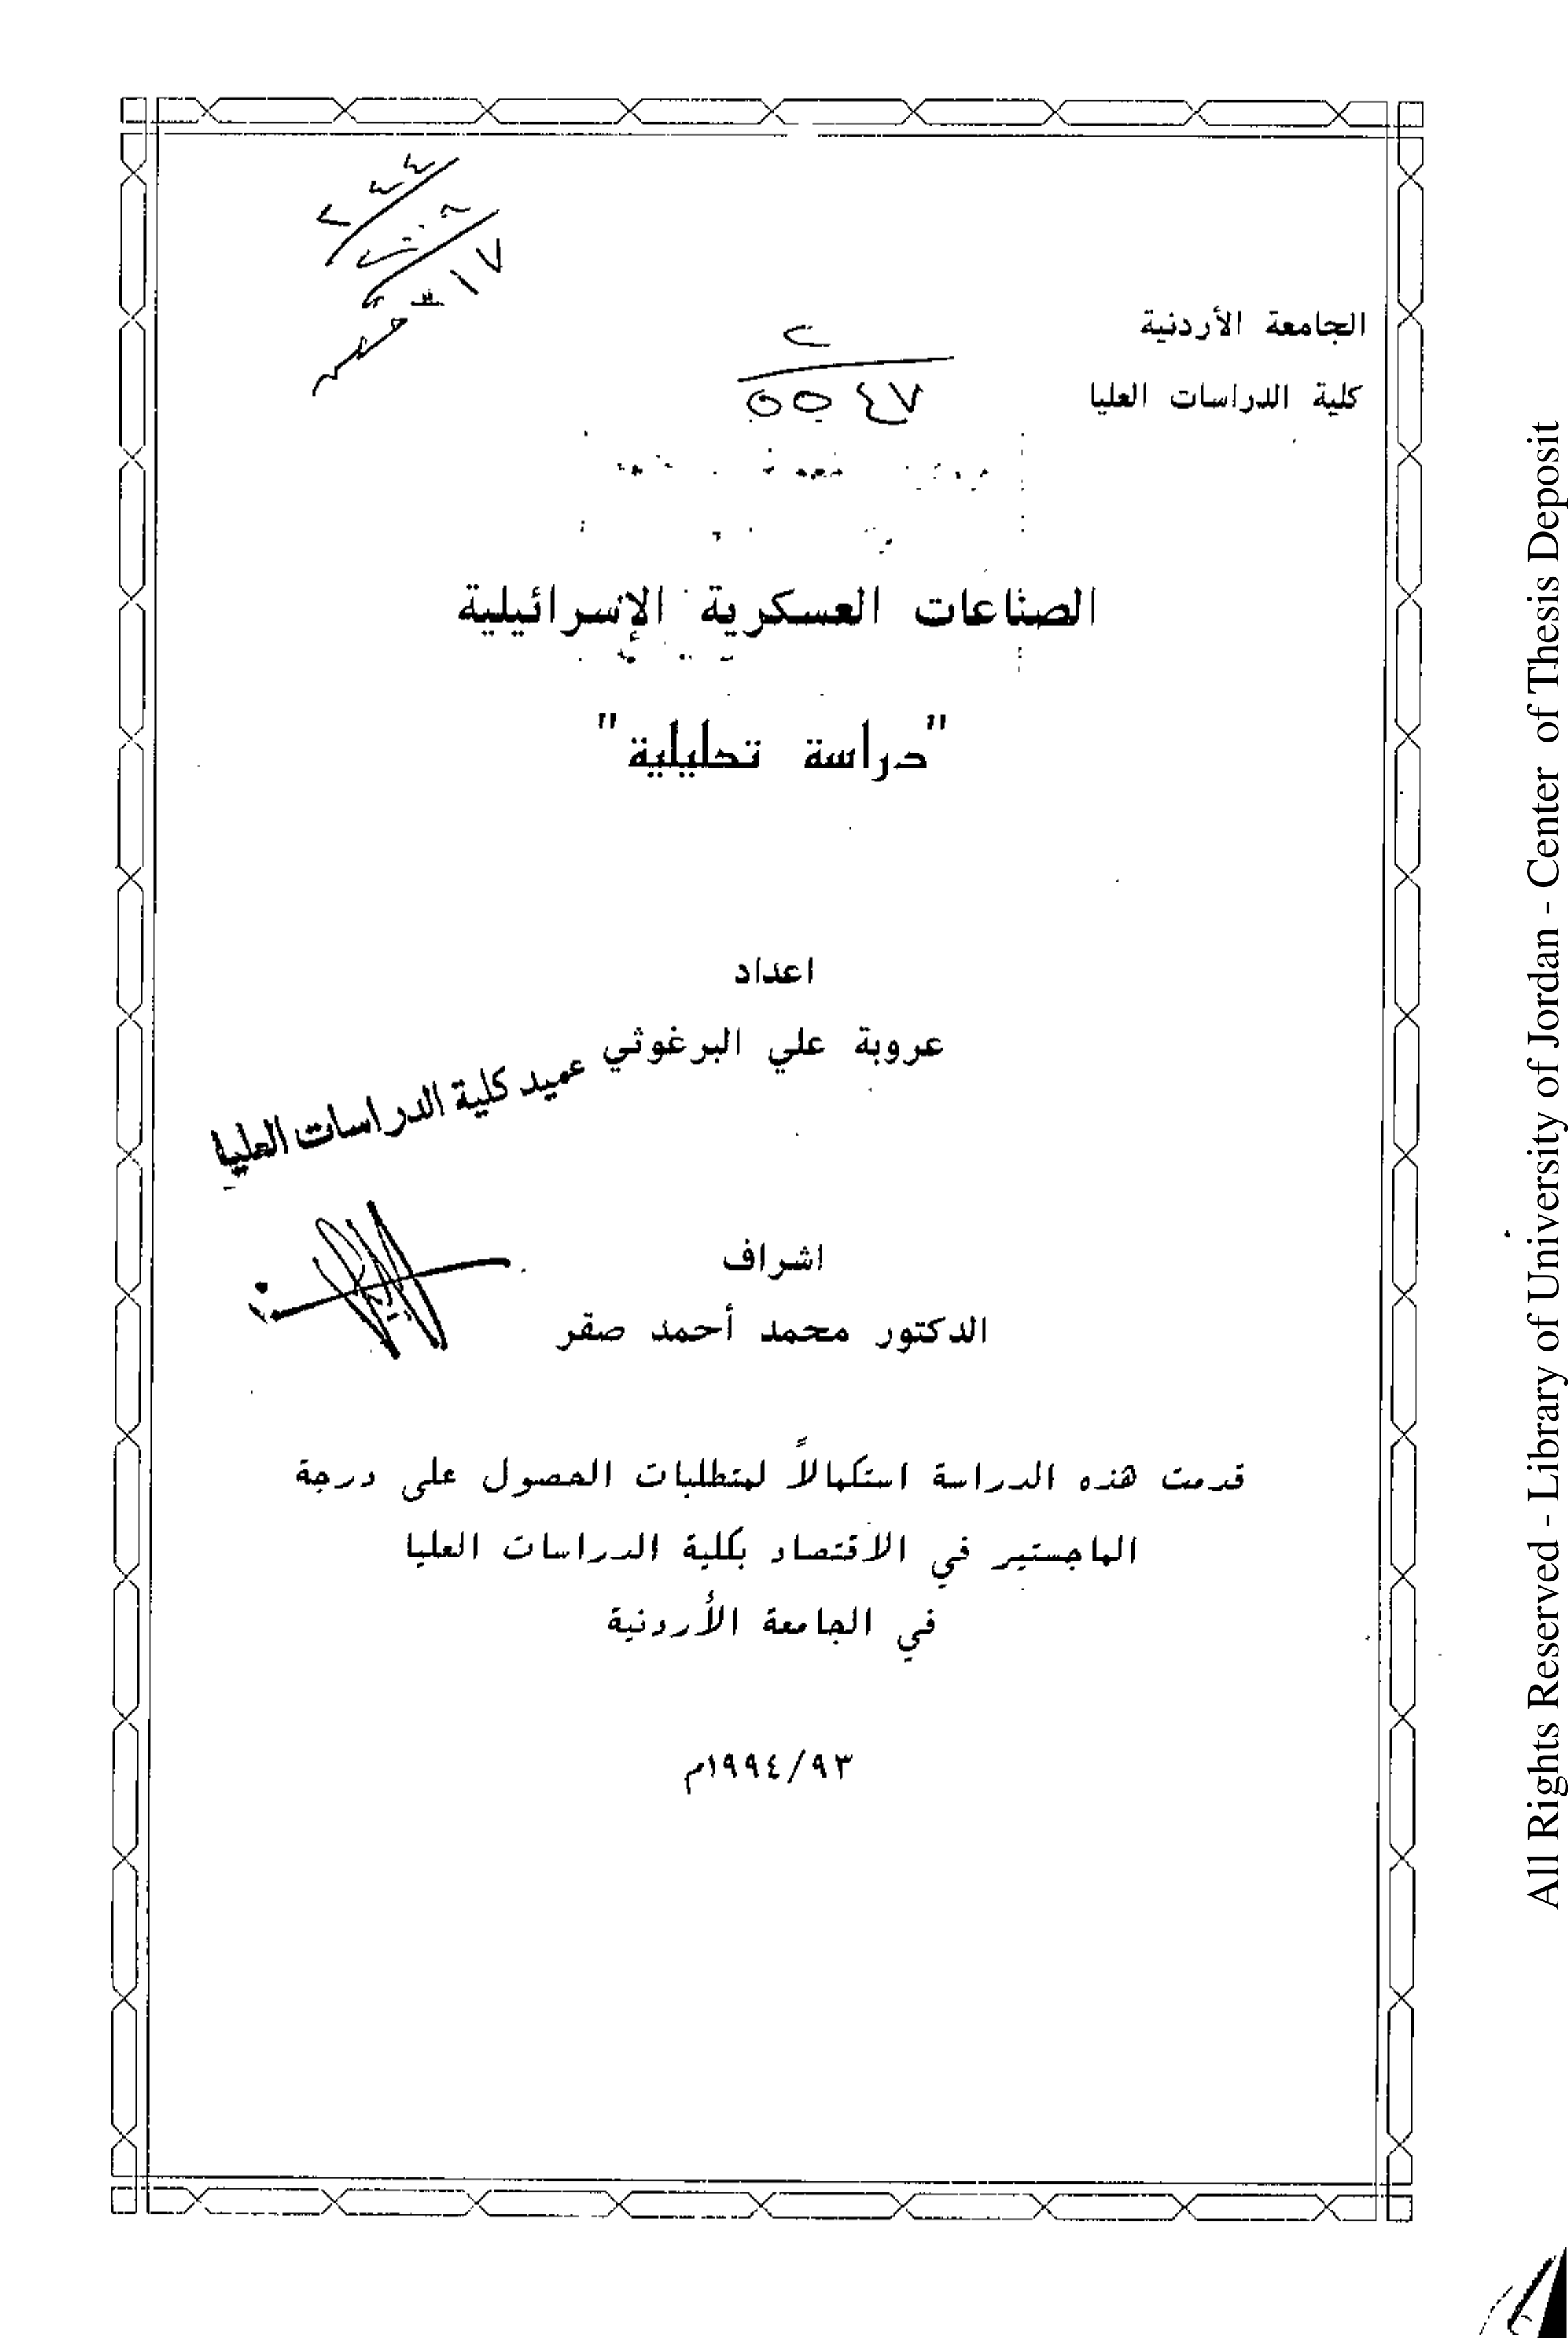 الجامعة الأردنية
كلية الدراسات العليا
٥٥٤٧
الصناعات العسكرية الإسرائيلية
"دراسة تحليلية"
اعداد
عروبة علي البرغوثي
عميد كلية الدراسات العليا
اشراف
الدكتور محمد أحمد صقر
قدمت هذه الدراسة استكمالاً لمتطلبات الحصول على درجة
الماجستير في الاقتصاد بكلية الدراسات العليا
في الجامعة الأردنية
١٩٩٤/٩٣م
All Rights Reserved - Library of University of Jordan - Center of Thesis Deposit